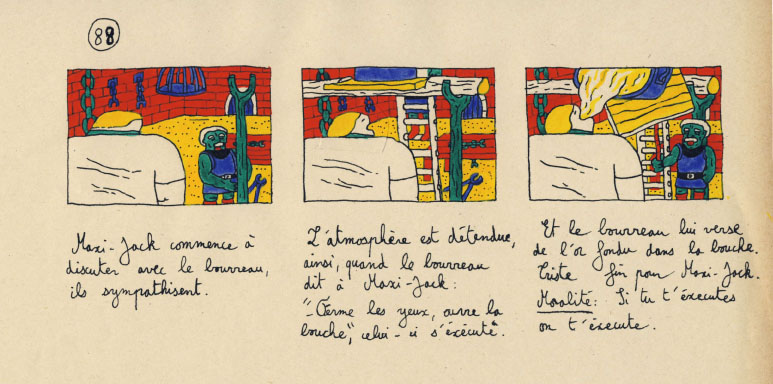 88
Maxi-Jack commence à
discuter avec le bourreau,
ils sympathisent.
L'atmosphère est détendue,
ainsi, quand le bourreau
dit à Maxi-Jack:
"-Ferme les yeux, ouvre la
bouche", celui-ci s'éxécute.
Et le bourreau lui verse
de l'or fondu dans la bouche.
Triste fin pour Maxi-Jack.
Moralité: Si tu t'éxécutes
on t'éxecute.